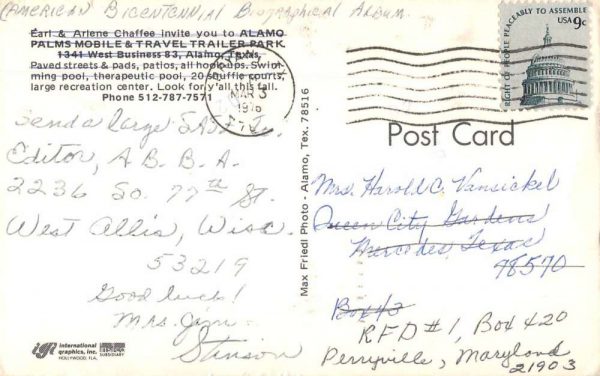 AMERICAN BICENTENNIAL BIOGRAPHICAL ALBUM
Earl & Arlene Chaffee invite you to ALAMO
PALMS MOBILE & TRAVEL TRAILER PARK.
1341 West Business 83, Alamo, Texas.
Paved streets & pads, patios, all hook ups. Swim-
ming pool, therapeutic pool, 20 shuffle courts,
large recreation center. Look for y'all this fall.
Phone 512-787-7571
Send a large SASE to
Editor, A.B.B.A.
2236 So. 77th St.
West Allis, Wisc.
53219
Good luck!
Mrs. Jym
Stinson
igi international
graphics, inc.
HOLLYWOOD, FLA.
SUBSIDIARY
Max Friedl Photo - Alamo, Tex. 78516
MAR 3
1976
RIGHT OF PEOPLE PEACEABLY TO ASSEMBLE
USA 9c
Post Card
Mrs. Harold C. Vansickel
Queen City Gardens
Mercedes, Texas
78570
Box 43
RFD #1, Box 420
Perryville, Maryland
21903